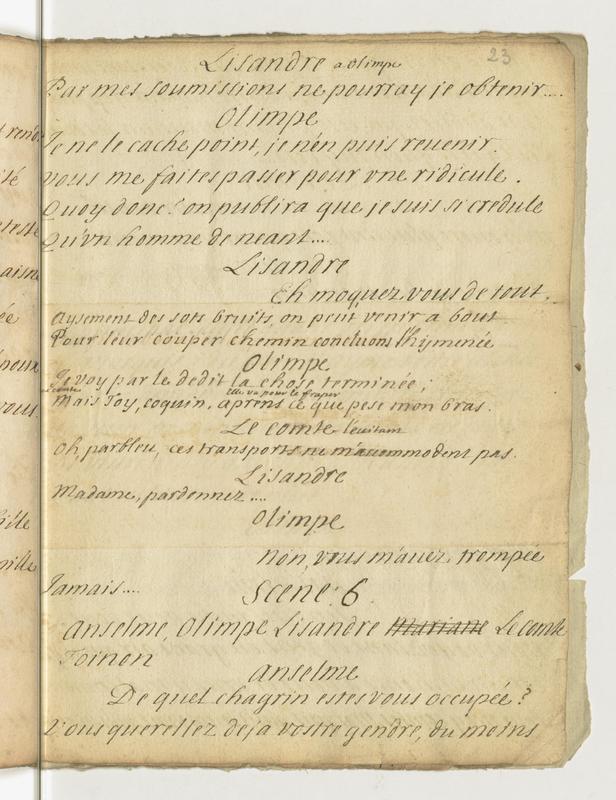 23
Lisandre a Olimpe
Par mes soumissions ne pourray je obtenir....
Olimpe
Je ne le cache point, je n'en puis reuenir.
vous me faites passer pour vne ridicule.
Quoy donc! on publira que je suis si credule
Qu'vn homme de neant....
Lisandre
Eh moquez vous de tout.
aysement des sots bruits on peut venir a bout
Pour leur couper chemin concluons l'hyminée
Olimpe
Je voy par le dedit la chose terminée;
au comte
elle va pour le fraper
mais Toy, coquin, aprens ce que pese mon bras.
Le comte l'euitant
oh, parbleu, ces transports ne m'accommodent pas.
Lisandre
Madame, pardonnez....
Olimpe
non, vous m'auez trompée
Jamais....
Scene. 6.
Anselme, Olimpe Lisandre Mariane Le comte
Toinon
Anselme
De quel chagrin estes vous occupée?
Vous querellez deja vostre gendre, du moins